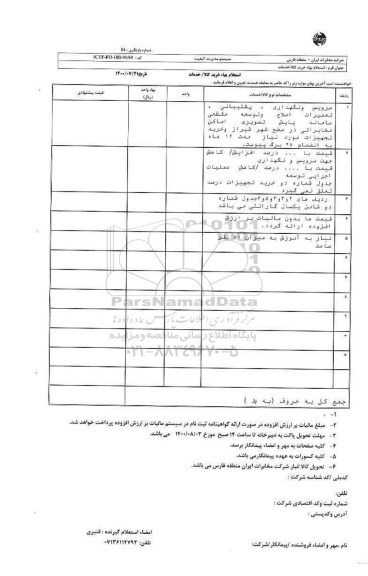 شماره بازنگری : 04
شرکت مخابرات ایران - منطقه فارس
سیستم مدیریت کیفیت
عنوان فرم : استعلام بهاء خرید کالا/خدمات
استعلام بهاء خرید کالا / خدمات
تاریخ: ۱۴۰۰/۰۷/۲۱
خواهشمند است آخرین بهای موارد زیر را که حاضر به معامله هستند تعیین و اعلام فرمائید
ردیف
مشخصات نوع کالا/خدمات
واحد
بهاء واحد (ریال)
قیمت پیشنهادی
۱
سرویس ونگهداری ، پشتیبانی ،
تعمیرات اصلاح وتوسعه مقطعی
سامانه پایش تصویری اماکن
مخابراتی در سطح شهر شیراز وخرید
تجهیزات مورد نیاز مدت ۱۲ ماه
به انضمام ۲۸ برگ پیوست.
۲
قیمت با ... درصد افزایش/ کاهش
جهت سرویس و نگهداری
قیمت با .... درصد /کاهش عملیات
اجرایی توسعه
جدول شماره دو خرید تجهیزات درصد
تعلق نمی گیرد
۳
ردیف های ۲و۳و۴و۵و۶جدول شماره
دو شامل یکسال گارانتی می باشد
۴
قیمت ها بدون مالیات بر ارزش
افزوده ارائه گردد.
۵
نیاز به آموزش به میزان نفر
ساعت
ParsNamadData
مرکز فرآوری اطلاعات پارس نماد داده ها
پایگاه اطلاع رسانی مناقصه و مزایده
۰۲۱-۸۸۳۴۹۶۷۰-۵
جمع کل به حروف (به ریال)
۱-
۲- مبلغ مالیات بر ارزش افزوده در صورت ارائه گواهینامه ثبت نام در سیستم مالیات بر ارزش افزوده پرداخت خواهد شد.
۳- مهلت تحویل پاکت به دبیرخانه تا ساعت ۱۴ صبح مورخ ۱۴۰۰/۰۸/۰۳ می باشد.
۴- کلیه صفحات به مهر و امضاء پیمانکار برسد.
۵- کلیه کسورات به عهده پیمانکارمی باشد.
۶- تحویل کالا انبار شرکت مخابرات ایران منطقه فارس می باشد.
کدملی /کد شناسه شرکت :
تلفن:
شماره ثبت وکد اقتصادی شرکت :
آدرس وکدپستی :
امضاء استعلام گیرنده : قنبری
نام ،مهر و امضاء فروشنده /پیمانکار/شرکت:
تلفن: ۰۷۱۳۶۱۱۲۷۹۲